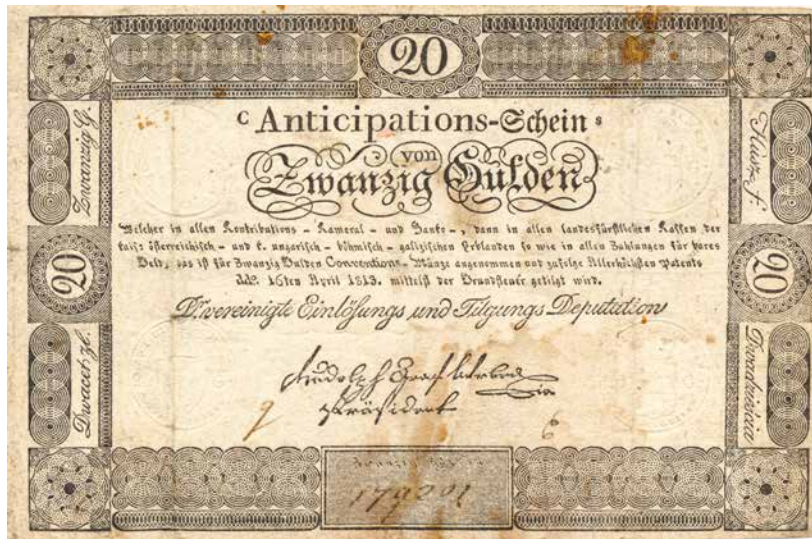 20
C Anticipations-Schein s
von
Zwanzig Gulden
Welcher in allen Kontributions - Kameral - und Banko -, dann in allen landesfürstlichen Kassen der
kais: österreichisch - und k. ungarisch - böhmisch - galizischen Erblanden so wie in allen Zahlungen für bares
Geld, das ist für Zwanzig Gulden Conventions - Münze angenommen und zufolge Allerhöchsten Patents
ddo. 16ten April 1813. mittelst der Grundsteuer getilgt wird.
Die vereinigte Einlösungs und Tilgungs Deputation
Rudolph Graf
Präsident
Zwanzig G.
20
Dwacet zl.
Húsz f.
20